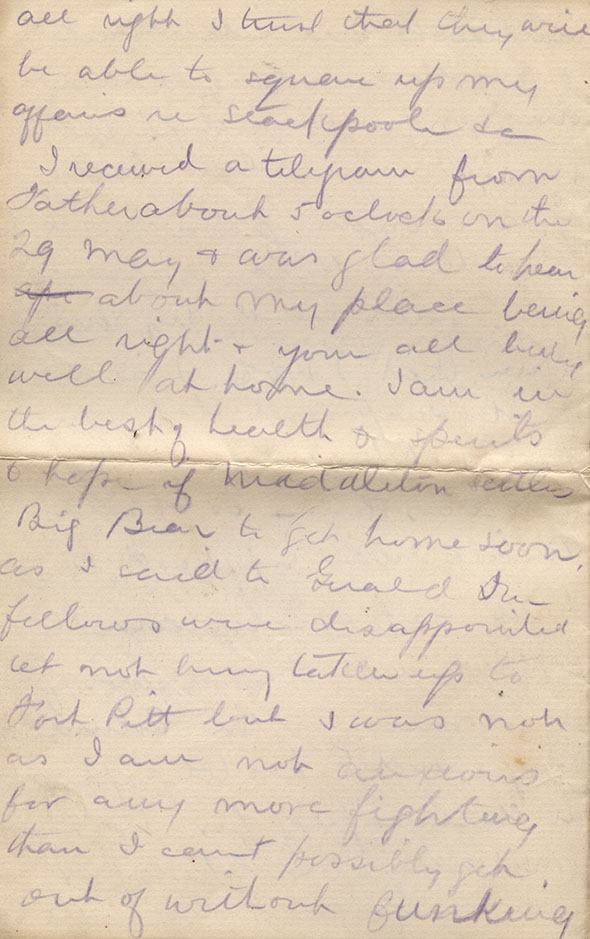 all right I trust that they will
be able to square up my
affairs re Stackpoole &c
I received a telegram from
Father about 5 oclock on the
29 May & was glad to hear
about my place being
all right & your all being
well at home. I am in
the best of health & spirits
& hope if Middleton settles
Big Bear to get home soon,
as I said to Gerald the
fellows were disappointed
at not being taken up to
Fort Pitt but I was not
as I am not anxious
for any more fighting
than I cant possibly get
out of without funking